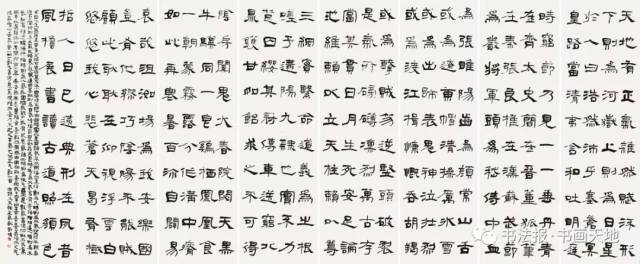 天地有正氣雜然賦流形
下則為河嶽上則為日星
於人曰浩然沛乎塞蒼冥
皇路當清夷含和吐明庭
時窮節乃見一一垂丹青
在齊太史簡在晉董狐筆
在秦張良椎在漢蘇武節
為嚴將軍頭為嵇侍中血
為張睢陽齒為顏常山舌
或為遼東帽清操厲冰雪
或為出師表鬼神泣壯烈
或為渡江楫慷慨吞胡羯
或為擊賊笏逆豎頭破裂
是氣所磅礴凜烈萬古存
當其貫日月生死安足論
地維賴以立天柱賴以尊
三綱實係命道義為之根
嗟予遘陽九隸也實不力
楚囚纓其冠傳車送窮北
鼎鑊甘如飴求之不可得
陰房闃鬼火春院閟天黑
牛驥同一皂雞棲鳳凰食
一朝蒙霧露分作溝中瘠
如此再寒暑百沴自辟易
哀哉沮洳場為我安樂國
豈有他繆巧陰陽不能賊
顧此耿耿在仰視浮雲白
悠悠我心悲蒼天曷有極
哲人日已遠典形在夙昔
風簷展書讀古道照顏色
书法报·书画天地